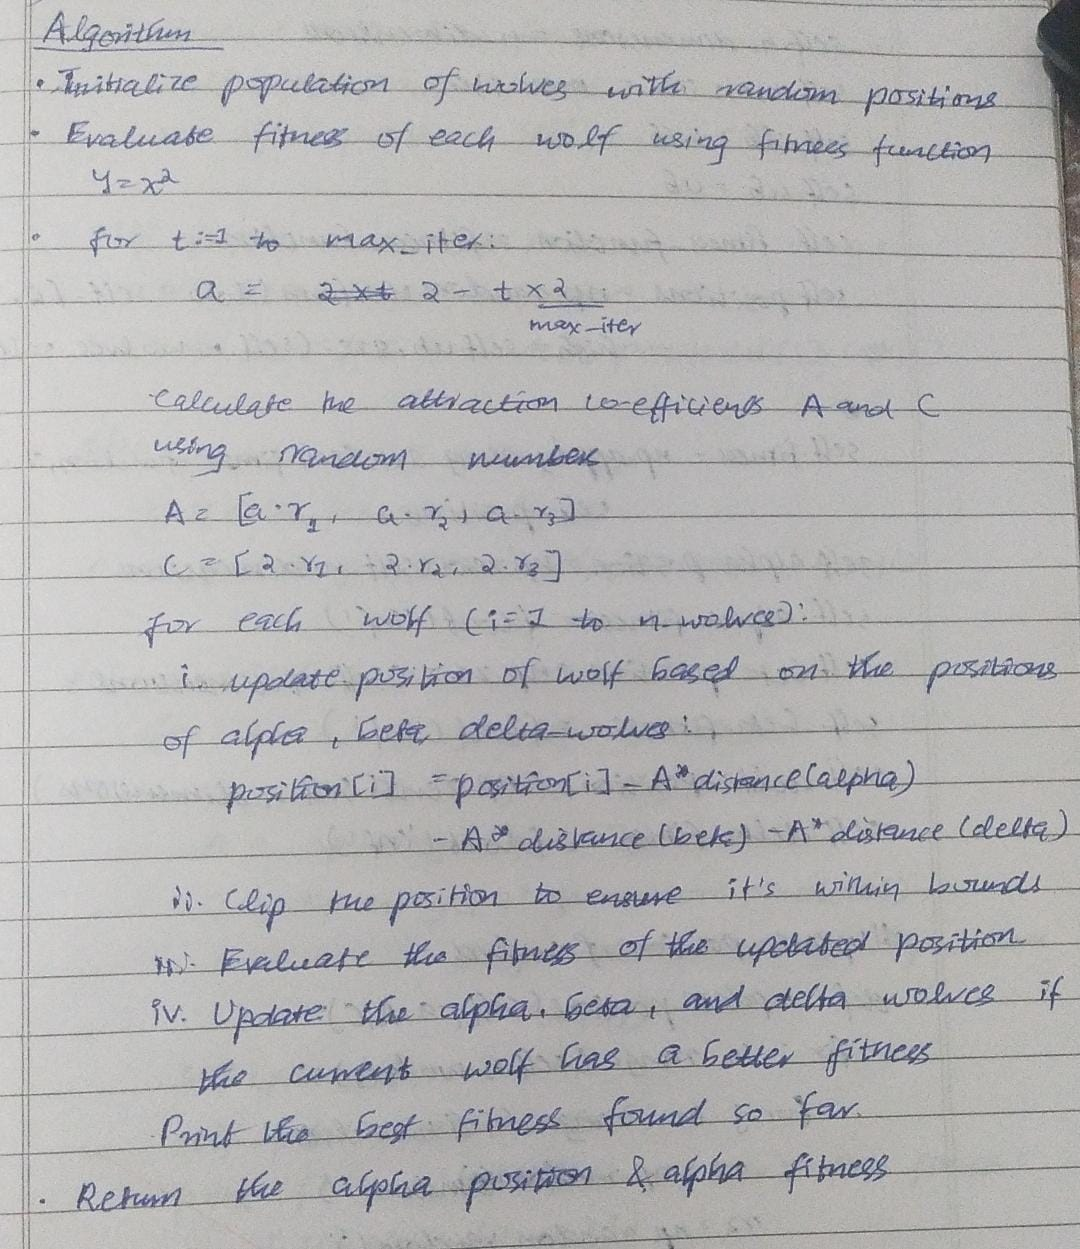 Algorithm
• Initialize population of wolves with random positions
• Evaluate fitness of each wolf using fitness function
y = x²
• for t:=1 to max_iter:
a = 2 - t × 2
max_iter
Calculate the attraction co-efficients A and C
using random numbers
A = [a·r₁, a·r₂, a·r₃]
C = [2·r₁, 2·r₂, 2·r₃]
for each wolf (i=1 to n_wolves):
i. update position of wolf based on the positions
of alpha, beta, delta wolves:
position[i] = position[i] - A* distance(alpha)
- A* distance (beta) - A* distance (delta)
ii. Clip the position to ensure it's within bounds
iii. Evaluate the fitness of the updated position
iv. Update the alpha, beta, and delta wolves if
the current wolf has a better fitness
Print the best fitness found so far.
• Return the alpha position & alpha fitness